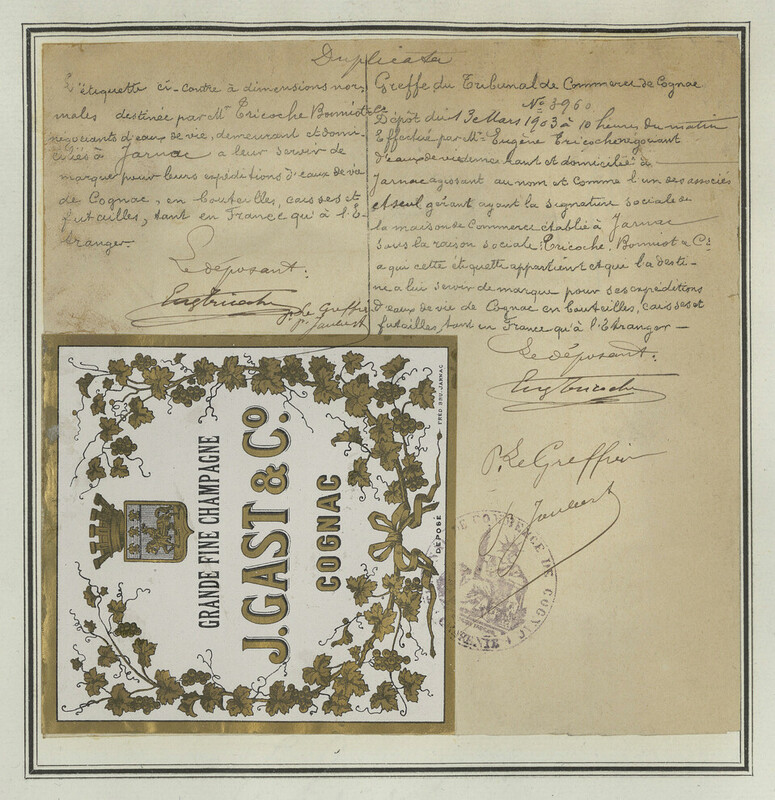 Duplicata
L'étiquette ci-contre à dimensions nor-
males destinée par Mrs Tricoche Bonniot & Co
négociants d'eaux de vie, demeurant et domi-
ciliés à Jarnac a leur servir de
marque pour leurs expéditions d'eaux de vie
de Cognac, en bouteilles, caisses et
futailles, tant en France qu'à l'E-
tranger.
Le déposant:
Eug Tricoche
p. Le Greffier
Jaubert
Greffe du Tribunal de Commerce de Cognac
No 3960
Dépôt du 13 Mars 1903 à 10 heures du matin
Effectué par Mr Eugène Tricoche négociant
d'eaux de vie demeurant et domicilié à
Jarnac agissant au nom et comme l'un des associés
et seul gérant ayant la signature sociale de
la maison de Commerce établie à Jarnac
sous la raison sociale: Tricoche, Bonniot & Co
a qui cette étiquette appartient et que l'a desti-
née a lui servir de marque pour ses expéditions
d'eaux de vie de Cognac en bouteilles, caisses et
futailles, tant en France qu'à l'Etranger —
Le déposant:
Eug Tricoche
p. Le Greffier
Jaubert
GRANDE FINE CHAMPAGNE
J. GAST & Co.
COGNAC
DÉPOSÉ
FRED BRU. JARNAC
DE COMMERCE DE COGNAC